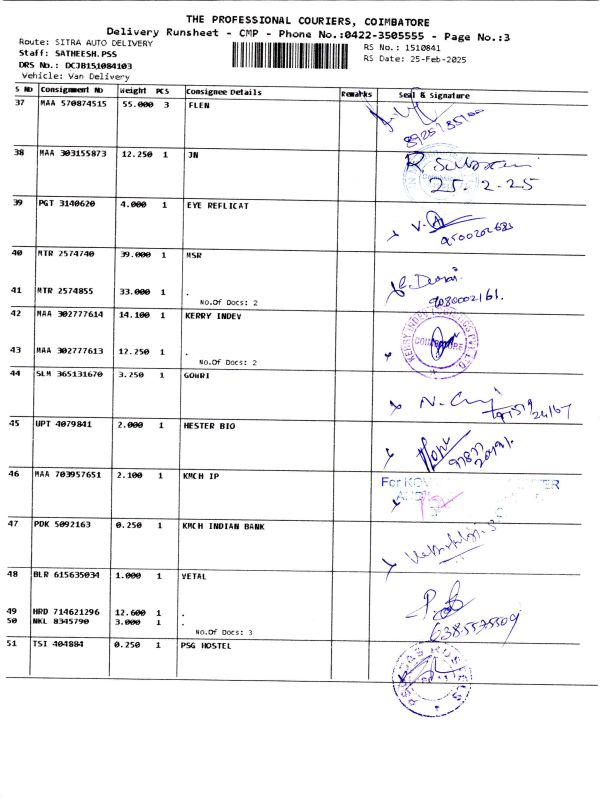 THE PROFESSIONAL COURIERS, COIMBATORE
Delivery Runsheet - CMP - Phone No.:0422-3505555 - Page No.:3
Route: SITRA AUTO DELIVERY
RS No.: 1510841
Staff: SATHEESH.PSS
RS Date: 25-Feb-2025
DRS No.: DCJB151084103
Vehicle: Van Delivery
S No Consignment No Weight PCS Consignee Details Remarks Seal & Signature
37 MAA 570874515 55.000 3 FLEN
38 MAA 303155873 12.250 1 JN
25.2.25
39 PGT 3140620 4.000 1 EYE REPLICAT
40 MTR 2574740 39.000 1 MSR
41 MTR 2574855 33.000 1 .
No.Of Docs: 2
9080002161.
42 MAA 302777614 14.100 1 KERRY INDEV
43 MAA 302777613 12.250 1 .
No.Of Docs: 2
COIMBATORE
44 SLM 365131670 3.250 1 GOWRI
45 UPT 4079841 2.000 1 HESTER BIO
46 MAA 703957651 2.100 1 KMCH IP
For
47 PDK 5092163 0.250 1 KMCH INDIAN BANK
48 BLR 615635034 1.000 1 VETAL
49 HRD 714621296 12.600 1 .
50 NKL 8345790 3.000 1 .
No.Of Docs: 3
6385575509
51 TSI 404884 0.250 1 PSG HOSTEL